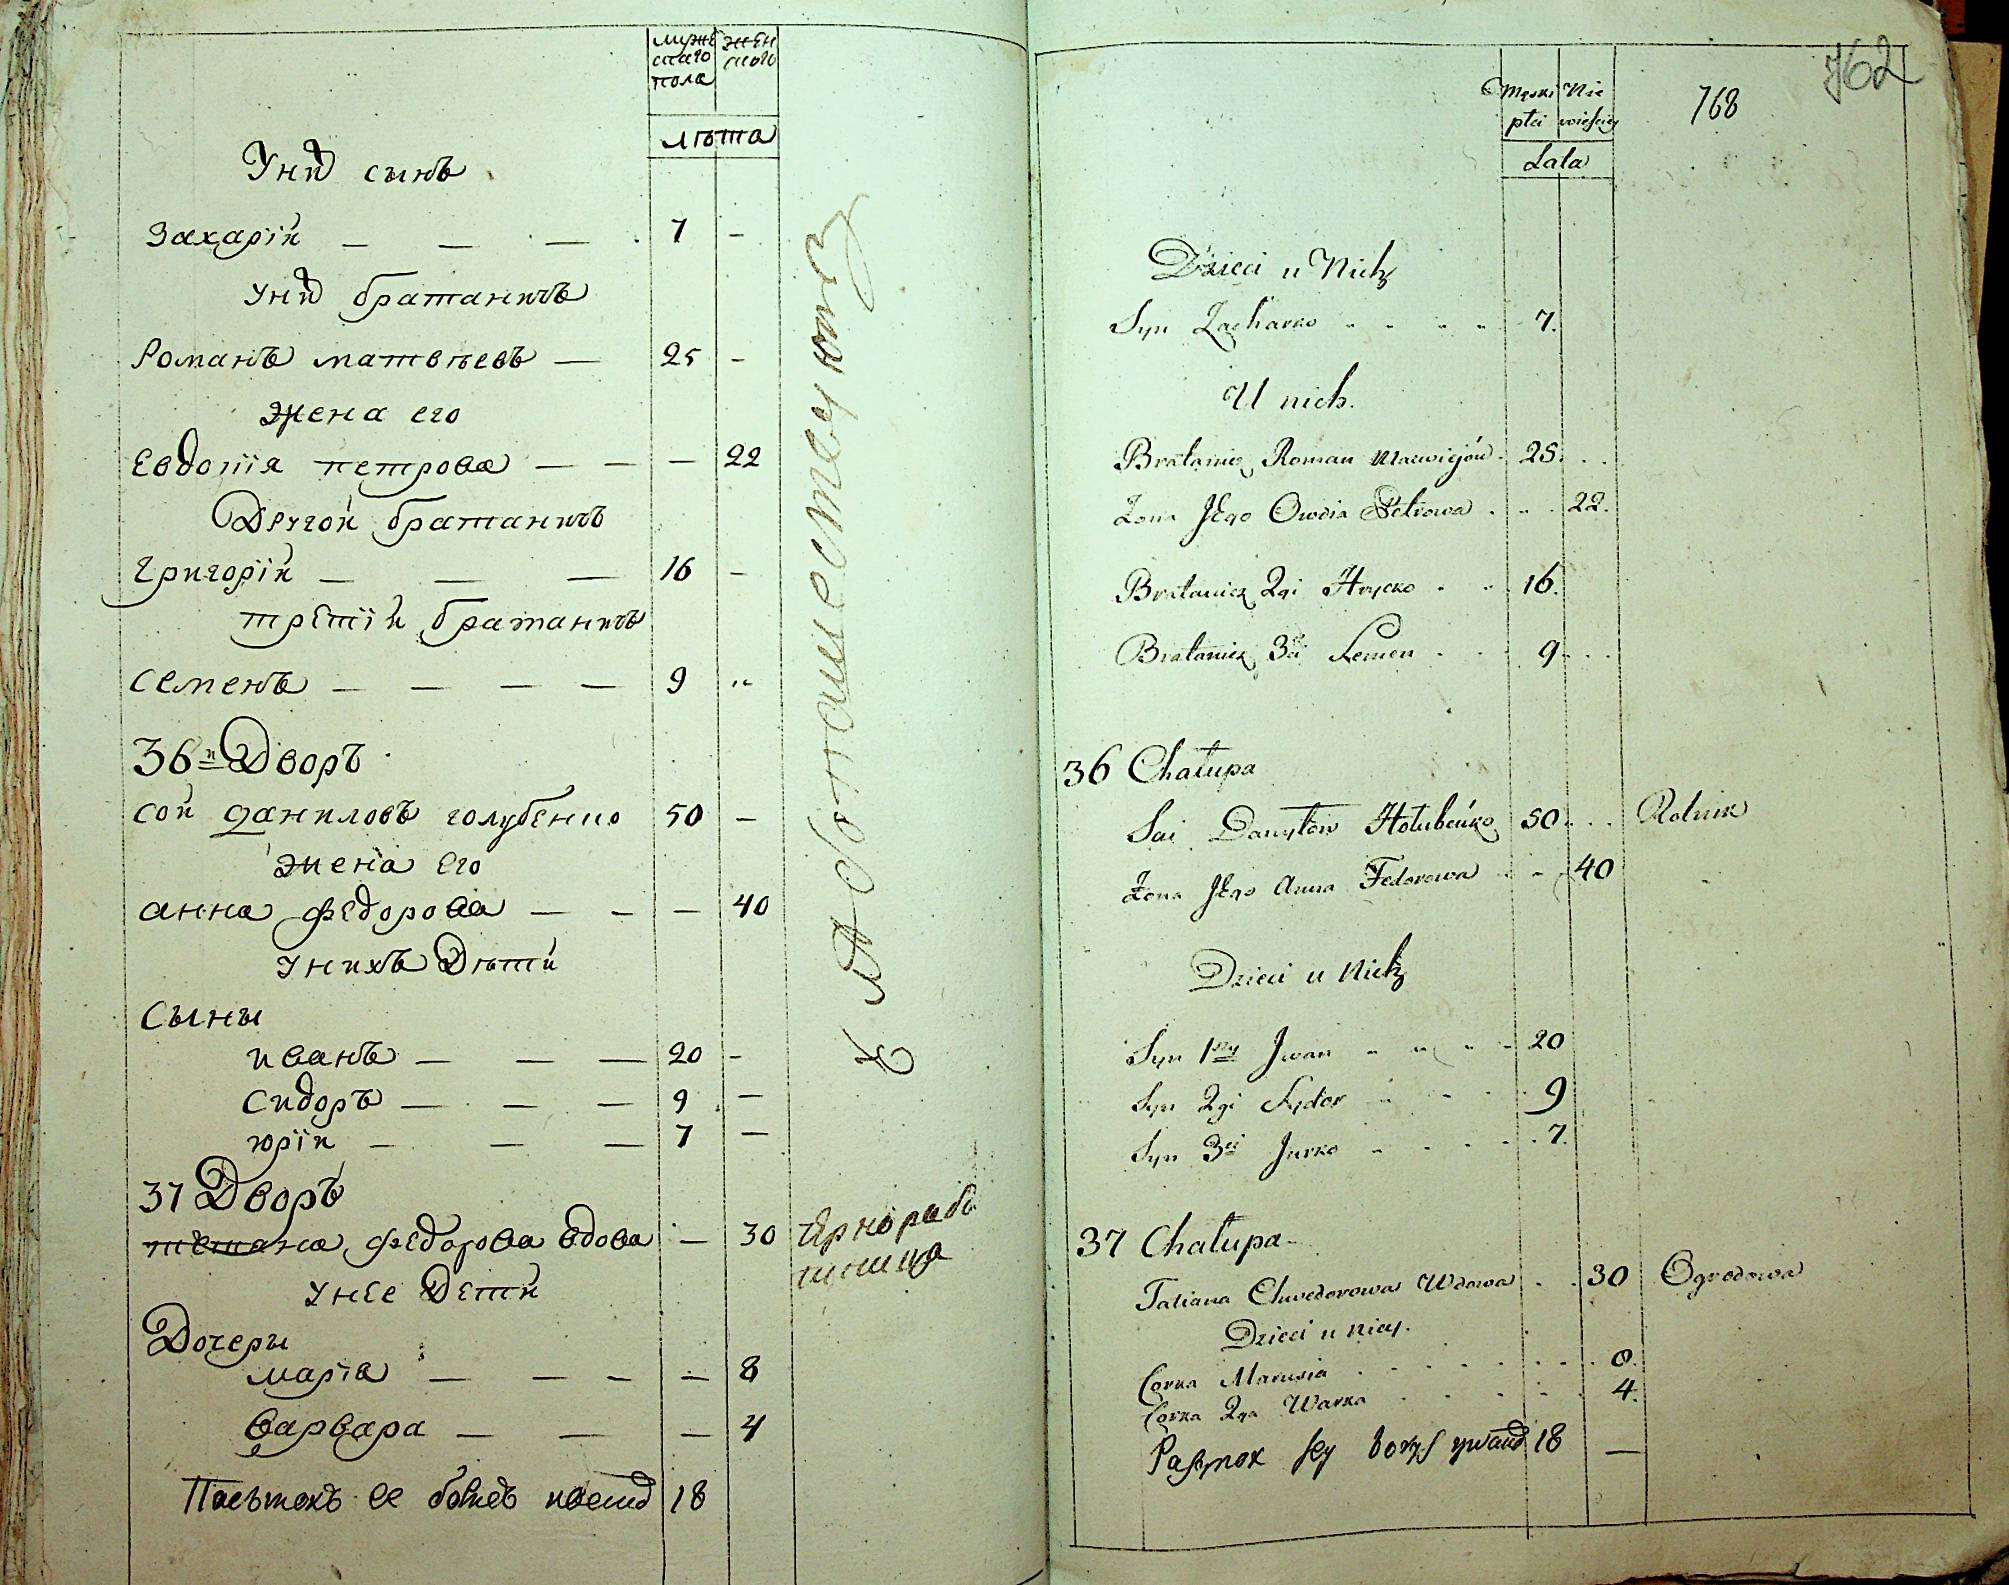 мужескаго пола
женскаго
лѣта
У них сынъ
Захарій 7 -
У них братаничъ
Романъ матвѣевъ 25 -
жена его
Евдокія петрова - 22
Другой братаничъ
Григорій 16 -
третій братаничъ
Семенъ 9
36й Дворъ
сой даниловъ голубенко 50 -
жена его
анна федорова - 40
У нихъ Дѣти
Сыны
иванъ 20 -
Сидоръ 9 -
юрій 7 -
37 Дворъ
татіана федорова вдова - 30
У нее Дети
Дочеры
марія - 8
варвара - 4
ее 18
Męski płci
Niewieściej
768
762
Lata
Dzieci u Nich
Syn Zacharko 7.
U nich.
Bratanicz Roman Matwiejów 25.
Żona Jego Owdia Petrowa 22.
Bratanicz 2gi Hrycko 16.
Bratanicz 3ci Semen 9
36 Chałupa
Sai Danyłow Hołubeńko 50 Rolnik
Żona Jego Anna Fedorowa 40
Dzieci u Nich
Syn 1szy Jwan 20
Syn 2gi Sydor 9
Syn 3ci Jurko 7.
37 Chałupa
Tatiana Chwedorowa Wdowa 30 Ogrodowa
Dzieci u niey.
Corka Marusia 8.
Corka 2ga Warka 4.
18 —